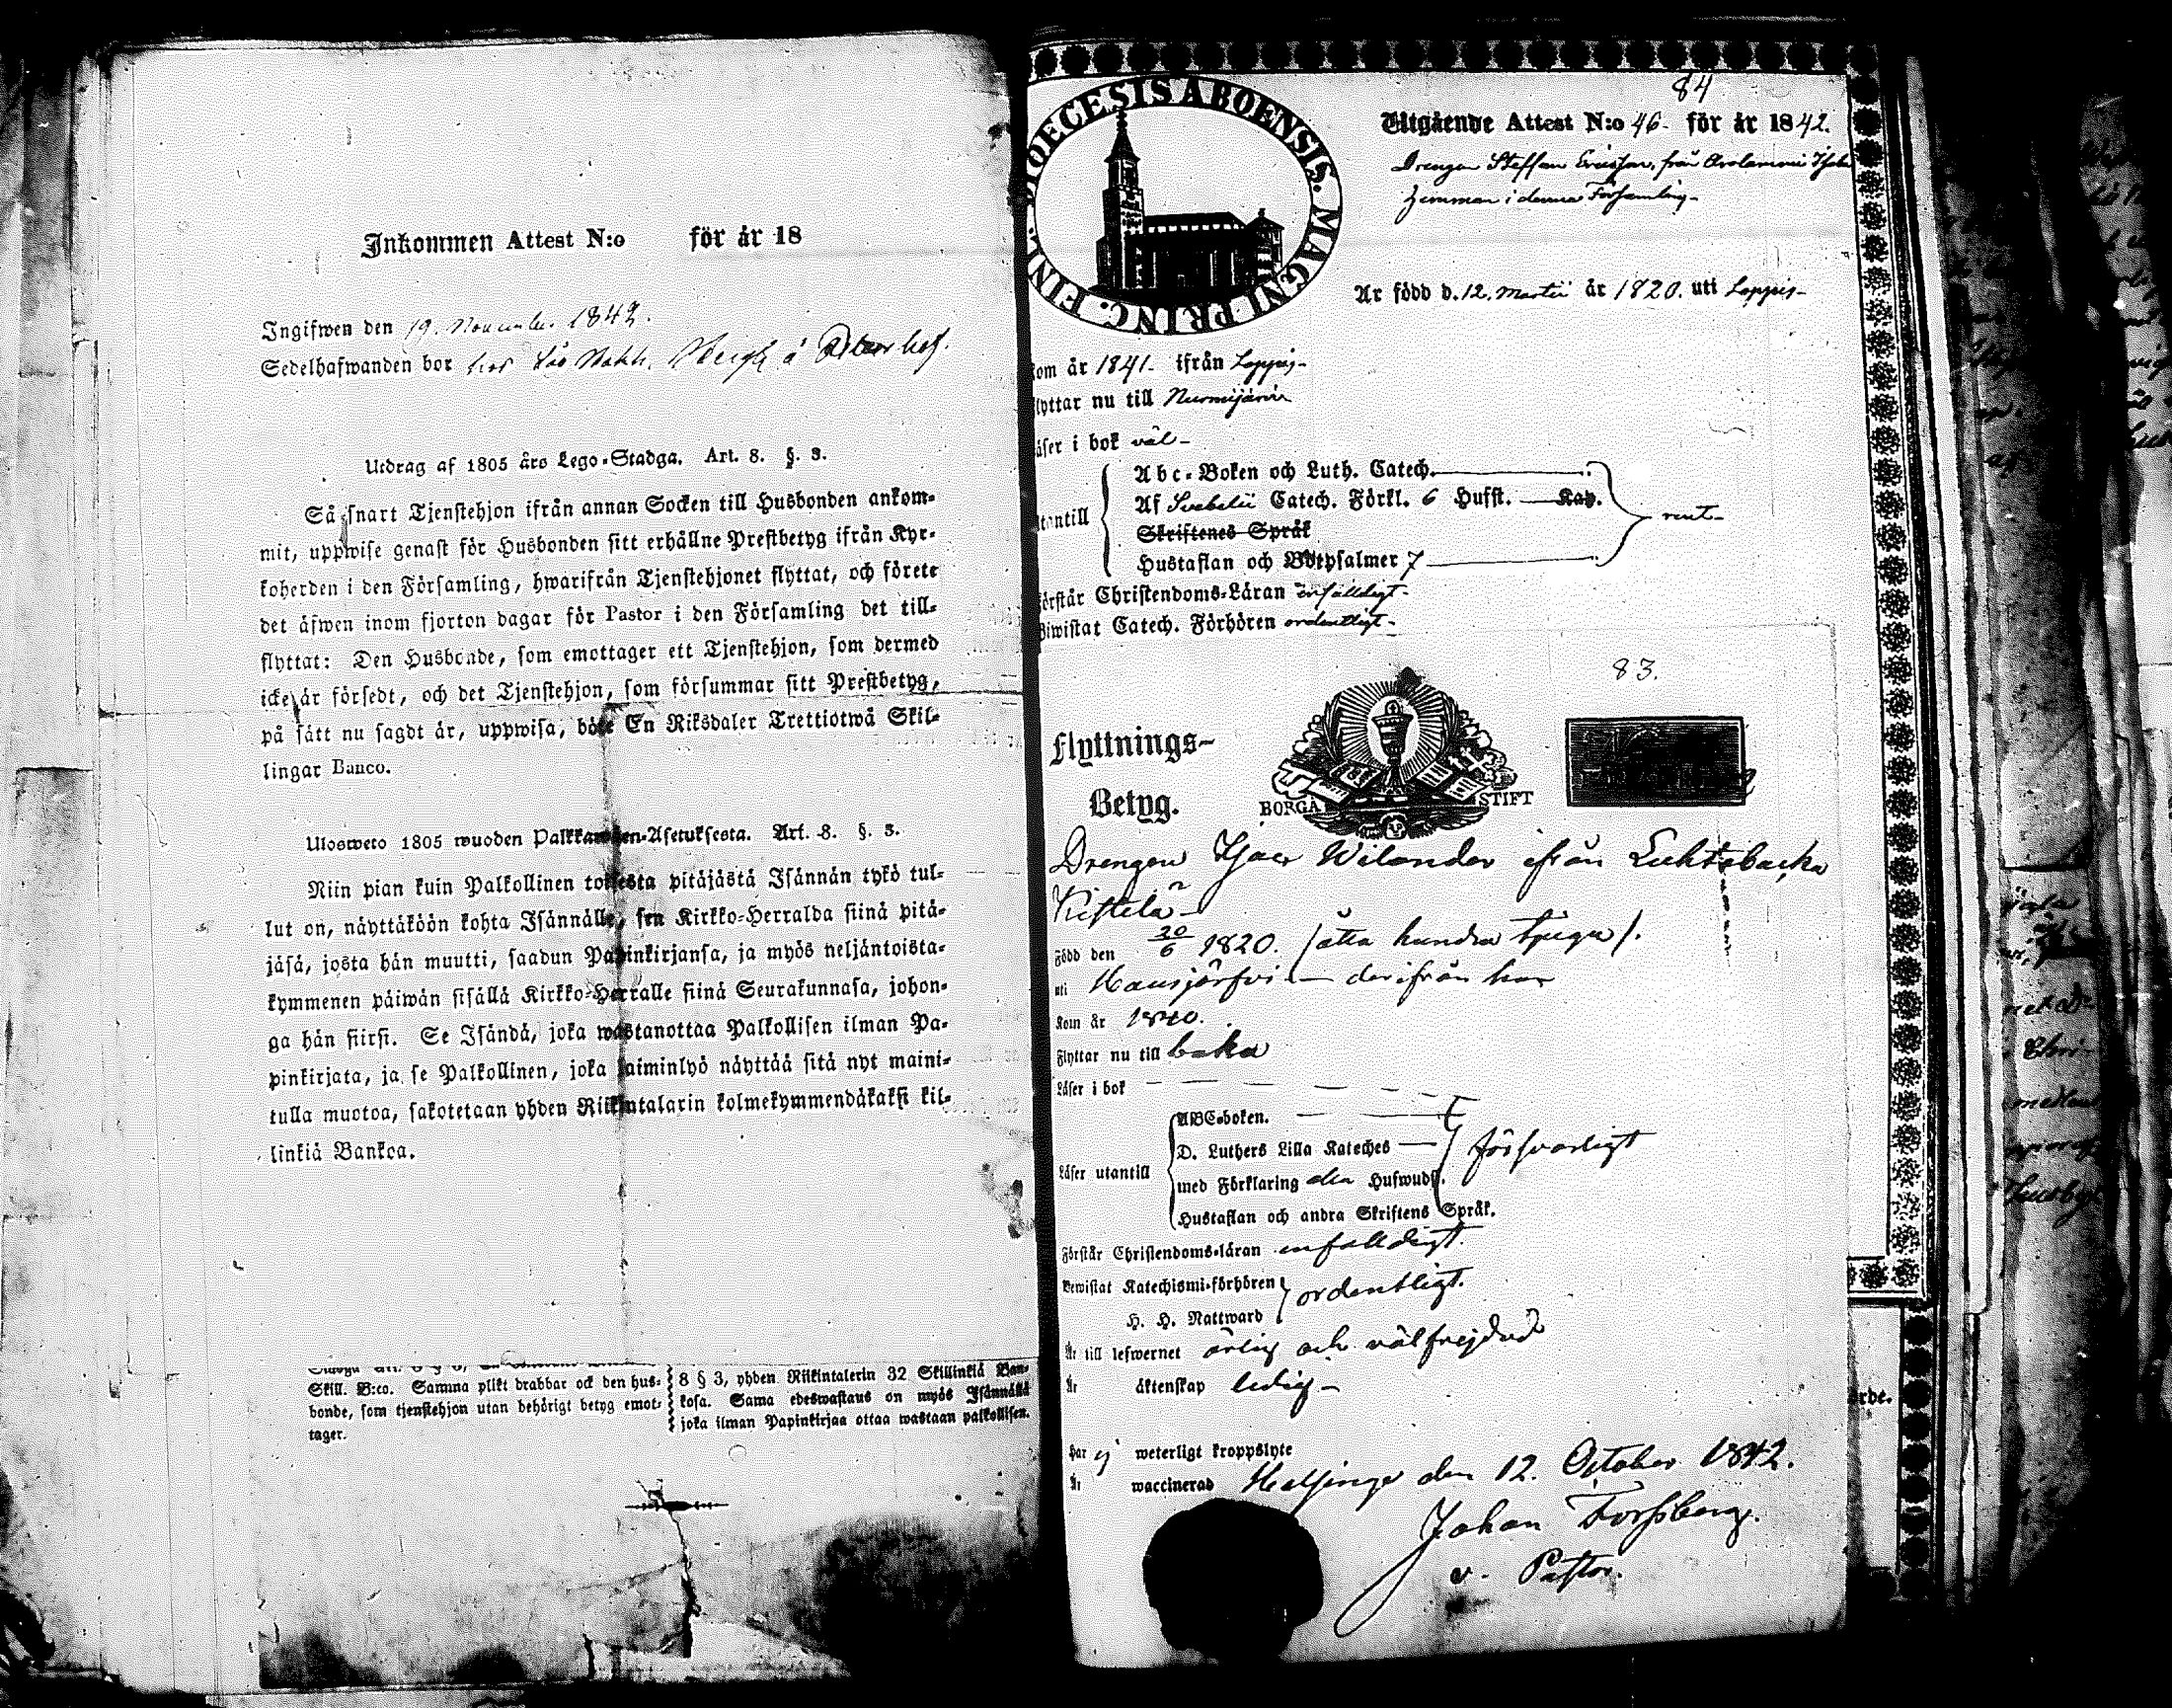 Inkommen Attest N:o för år 18
Ingifwen den 19. November 1842.
Sedelhafwanden bor hos
Utdrag af 1805 års Lego-Stadga. Art. 8. §. 3.
Så snart Tjenstehjon ifrån annan Socken till Husbonden ankom-
mit, uppwise genast för Husbonden sitt erhållne Prestbetyg ifrån Kyr-
koherden i den Församling, hwarifrån Tjenstehjonet flyttat, och förete
det äfwen inom fjorton dagar för Pastor i den Församling det till-
flyttat: Den Husbonde, som emottager ett Tjenstehjon, som dermed
icke är försedt, och det Tjenstehjon, som försummar sitt Prestbetyg,
på sätt nu sagdt är, uppwisa, böte En Riksdaler Trettiotwå Skil-
lingar Banco.
Ulosweto 1805 wuoden Palkkawäen-Asetuksesta. Art. 8. §. 3.
Niin pian kuin Palkollinen toisesta pitäjästä Isännän tykö tul-
lut on, näyttäköön kohta Isännälle, sen Kirkko-Herralda siinä pitä-
jäsä, josta hän muutti, saadun Papinkirjansa, ja myös neljäntoista-
kymmenen päiwän sisällä Kirkko-Herralle siinä Seurakunnasa, johon-
ga hän siirsi. Se Isändä, joka wastanottaa Palkollisen ilman Pa-
pinkirjata, ja se Palkollinen, joka laiminlyö näyttää sitä nyt maini-
tulla muotoa, sakotetaan yhden Riikintalarin kolmekymmendäkaksi kil-
linkiä Bankoa.
Skill. B:co. Samma plikt drabbar ock den hus-
bonde, som tjenstehjon utan behörigt betyg emot-
tager.
8 § 3, yhden Riikintalerin 32 Skillinkiä Ban-
kosa. Sama edeswastaus on myös Isännällä
joka ilman Papinkirjaa ottaa wastaan palkollisen.
84
DIOECESIS ABOENSIS. MAGNI PRINC. FINL.
Utgående Attest N:o 46. för år 1842.
Drengen Steffan Ericsson, från
hemman i denna Församling-
Är född d. 12. Martii år 1820. uti Loppis-
kom år 1841- ifrån Loppis-
flyttar nu till Nurmijärvi
läser i bok väl-
utantill
Abc-Boken och Luth. Catech.
Af Svebelii Catech. Förkl. 6 Hufst. Kap.
Skriftenes Språk
Hustaflan och Botpsalmer 7
rent-
förstår Christendoms-Läran enfäldigt-
Biwistat Catech. Förhören ordentligt-
83.
Flyttnings-
Betyg.
BORGÅ STIFT
Drengen Isac Wilander ifrån Luhtabacka
Kittelä-
Född den 20/6 1820. /åtta hundra tjugu/.
uti Hausjärfvi- derifrån han
Kom år 1840.
Flyttar nu till baka
Läser i bok
Läser utantill
ABC-boken.
D. Luthers Lilla Kateches
med Förklaring alla Hufwudst.
Hustaflan och andra Skriftens Språk.
försvarligt
Förstår Christendoms-läran enfalldigt.
Bewistat Katechismi-förhören
H. H. Nattward
ordentligt.
Är till lefwernet ärlig och välfrejdad
Är äktenskap ledig-
Har ej weterligt kroppslyte
Är waccinerad Helsinge den 12. October 1842.
Johan Forssberg.
v. Pastor.